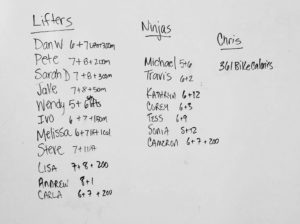 Lifters
Dan W 6+7
Pete 7+8+200m
Sarah D 7+8+300m
Jake 7+8+50m
Wendy 5+6
Ivo 6+7+150m
Melissa 6+7
Steve 7+
Lisa 7+8+200
Andrew 8+1
Carla 6+7+200
Ninjas
Michael 5+6
Travis 6+2
Kathryn 6+12
Corey 6+3
Tess 6+9
Sonia 5+12
Cameron 6+7+200
Chris
361 Bike Calories